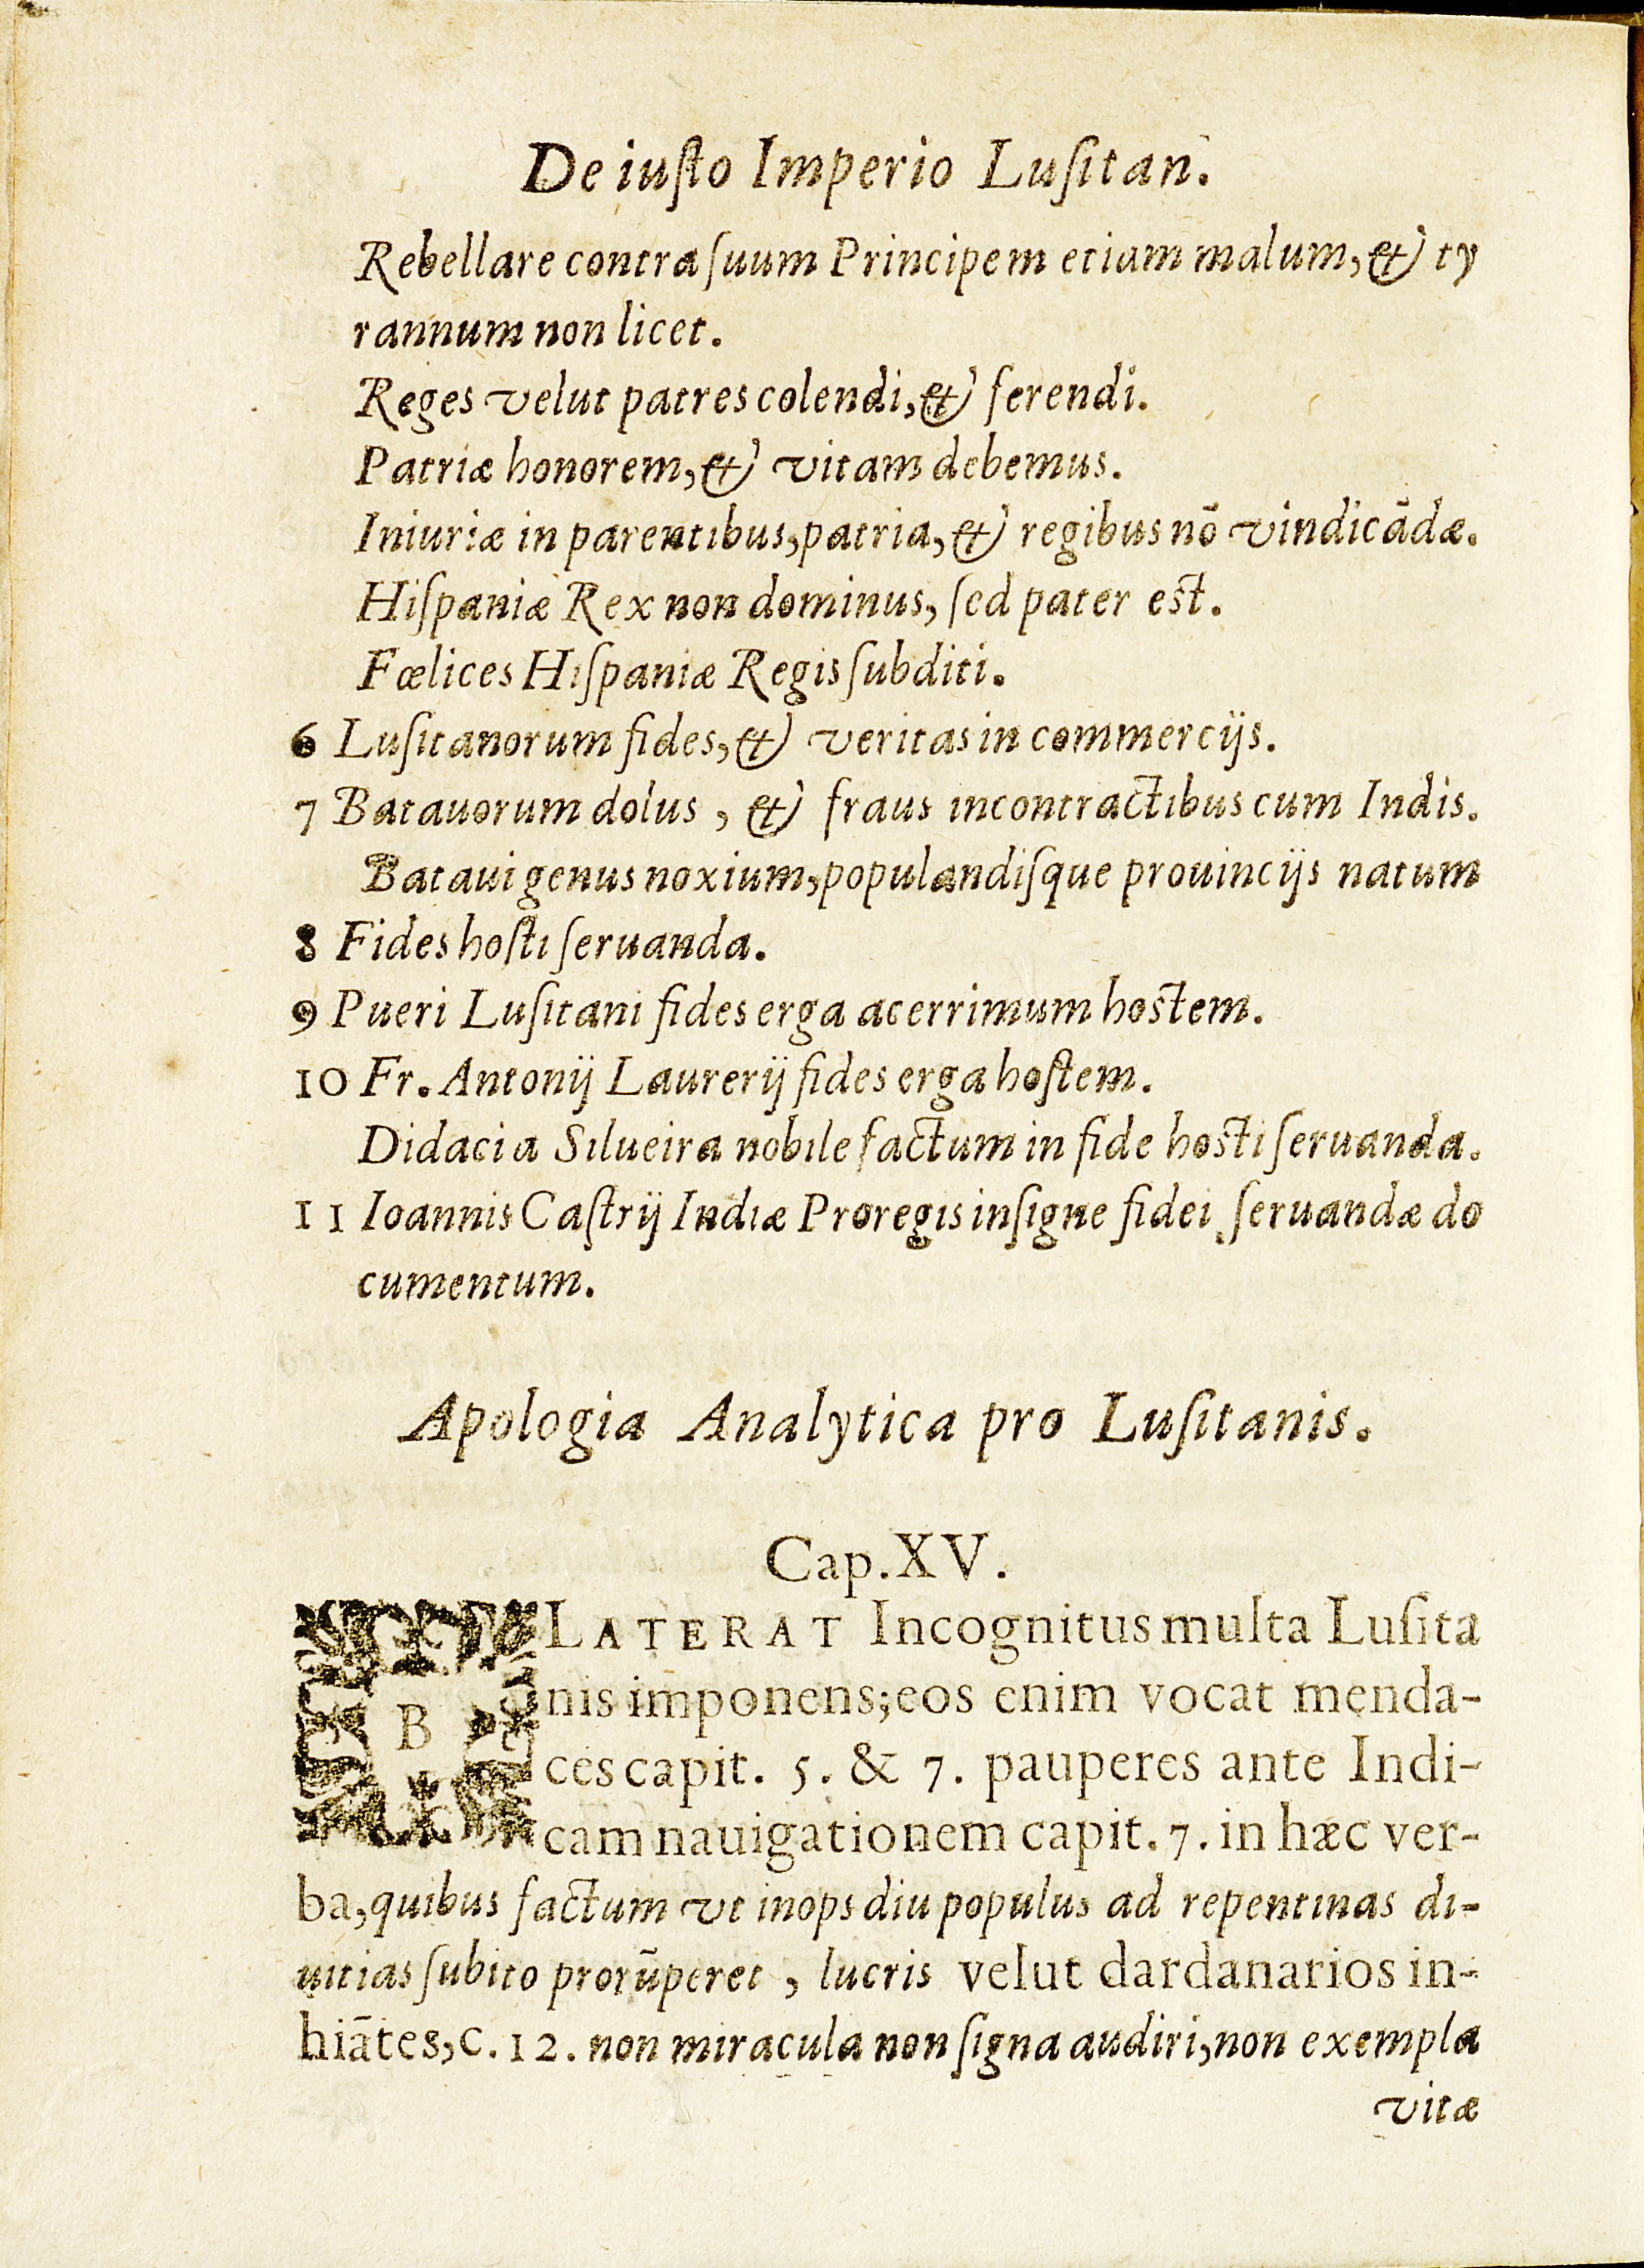 De iuſto Imperio Luſitan.
Rebellare contra ſuum Principem etiam malum, & ty
rannum non licet.
Reges velut patres colendi, & ferendi.
Patriæ honorem, & vitam debemus.
Iniuriæ in parentibus, patria, & regibus nō vindicādæ.
Hiſpaniæ Rex non dominus, ſed pater est.
Fœlices Hiſpaniæ Regis ſubditi.
6 Luſitanorum fides, & veritas in commercijs.
7 Batauorum dolus, & fraus incontractibus cum Indis.
Bataui genus noxium, populandiſque prouincijs natum
8 Fides hoſti ſeruanda.
9 Pueri Luſitani fides erga acerrimum hostem.
10 Fr. Antonij Laurerij fides erga hoſtem.
Didaci a Silueira nobile factum in fide hosti ſeruanda.
11 Ioannis Caſtrij Indiæ Proregis inſigne fidei ſeruandæ do
cumentum.
Apologia Analytica pro Luſitanis.
Cap. XV.
BLATERAT Incognitus multa Luſita
nis imponens; eos enim vocat menda-
ces capit. 5. & 7. pauperes ante Indi-
cam nauigationem capit. 7. in hæc ver-
ba, quibus factum vt inops diu populus ad repentinas di-
uitias ſubito prorūperet, lucris velut dardanarios in-
hiātes, C. 12. non miracula non ſigna audiri, non exempla
vitæ